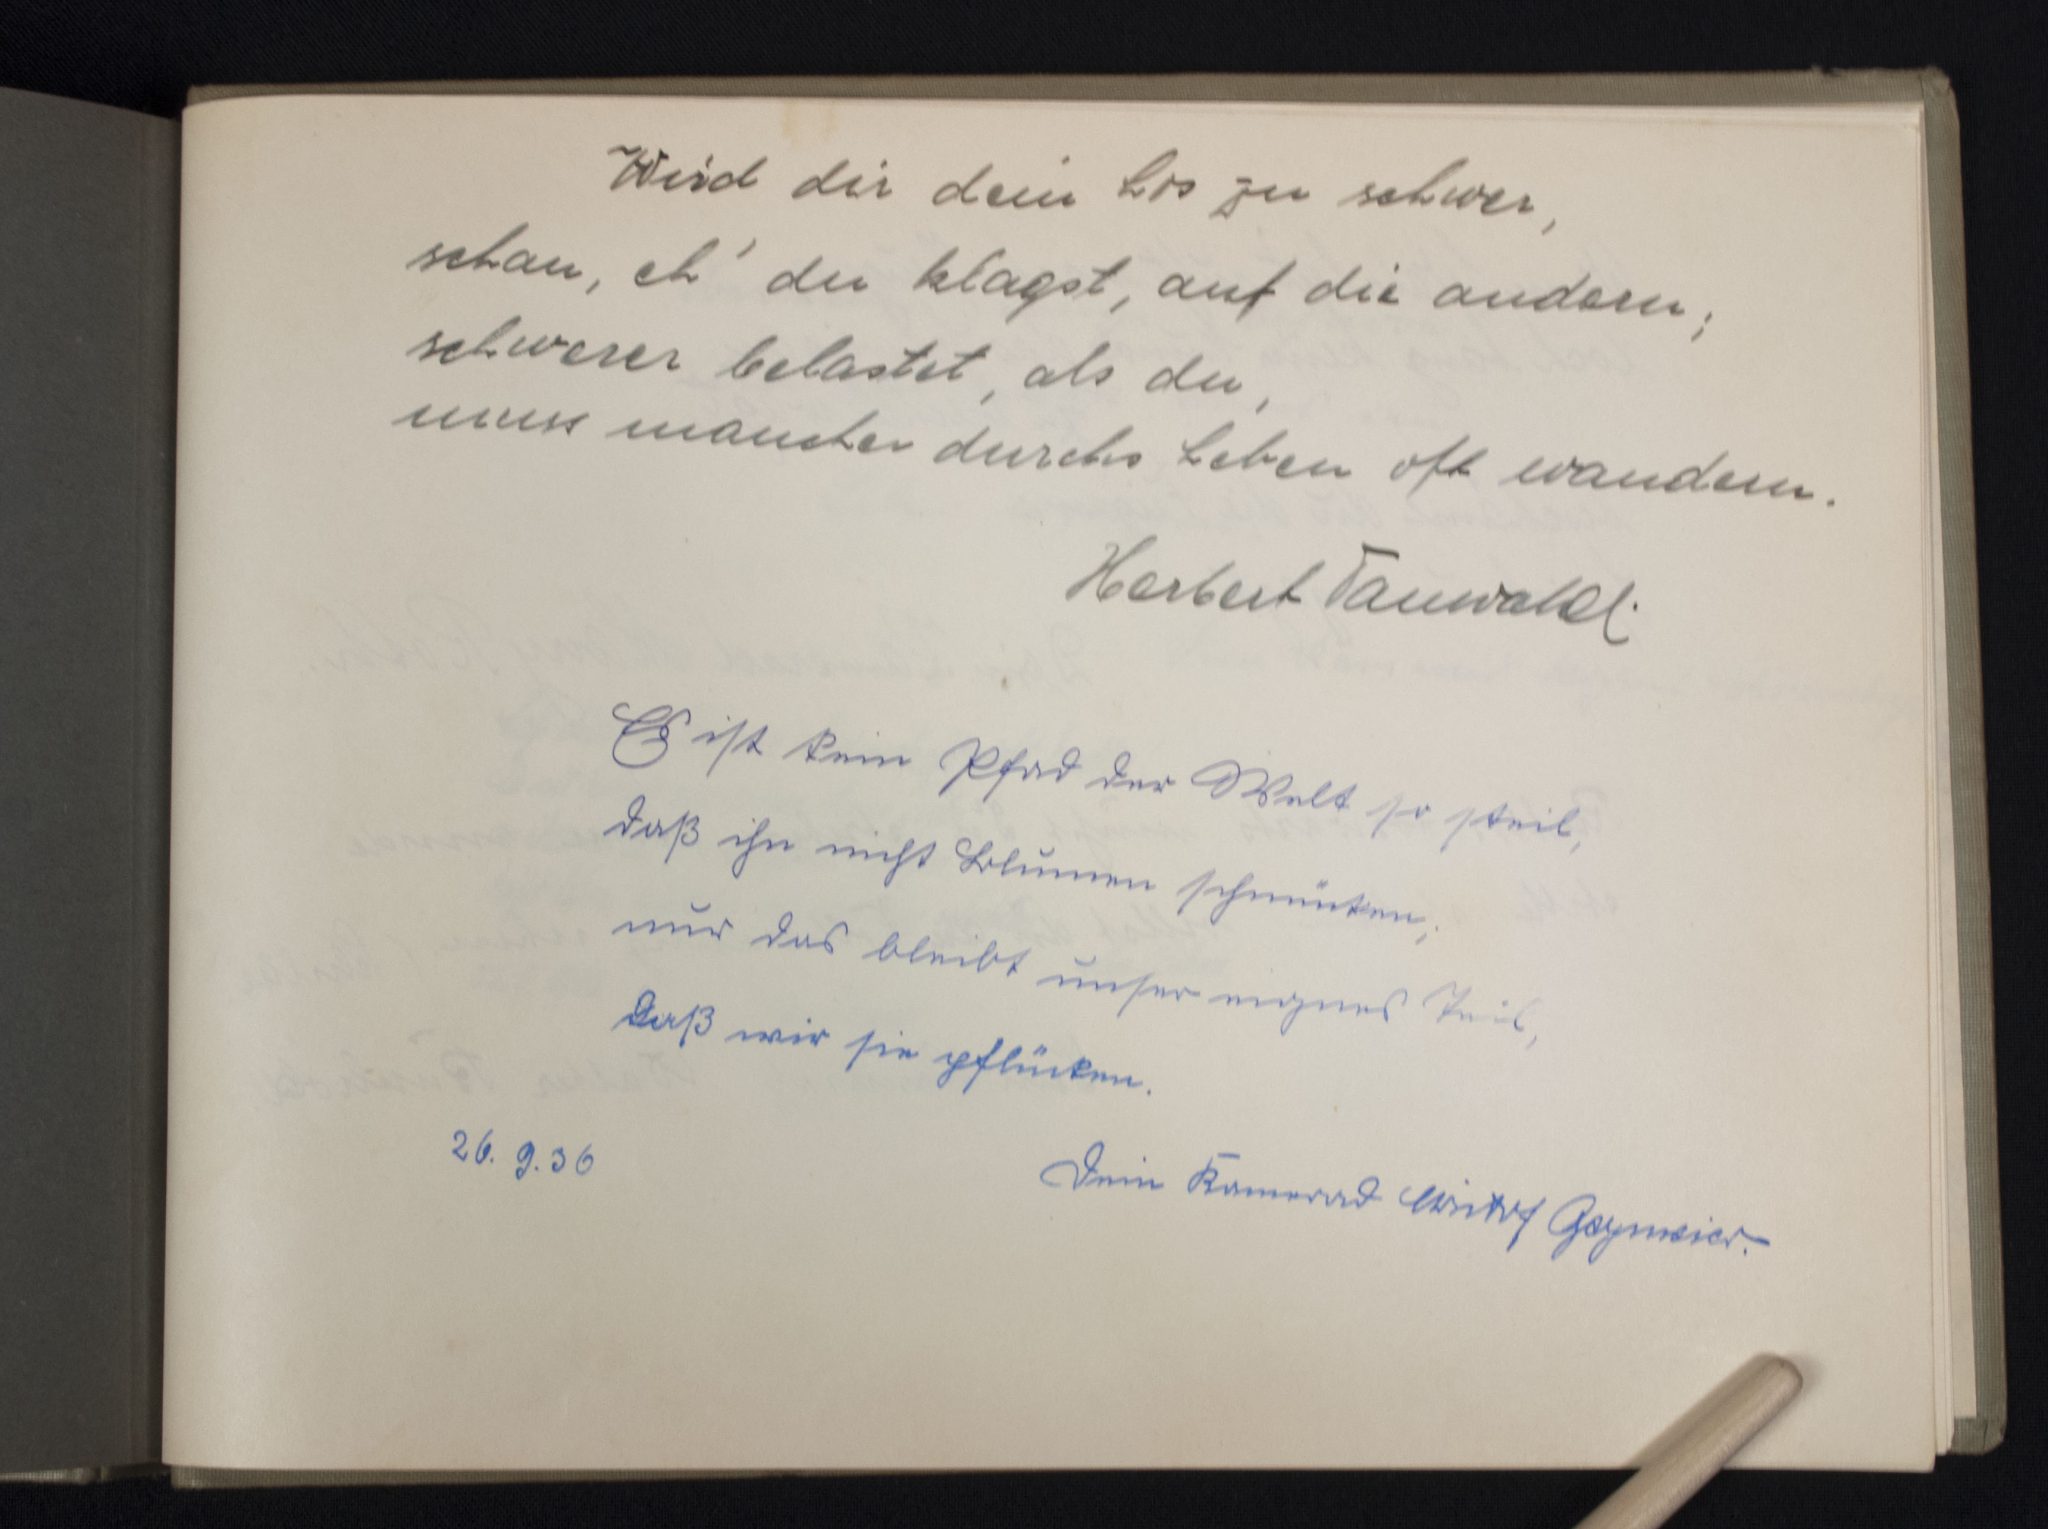 Wird dir dein Los zu schwer,
schau, eh' du klagst, auf die andern;
schwerer belastet, als du,
muss mancher durchs Leben oft wandern.
Herbert Tauwald.
Es ist kein Pfad der Welt so steil,
daß ihn nicht Blumen schmücken,
nur das bleibt unser eignes Teil,
daß wir sie pflücken.
26. 9. 36
Dein Kamerad